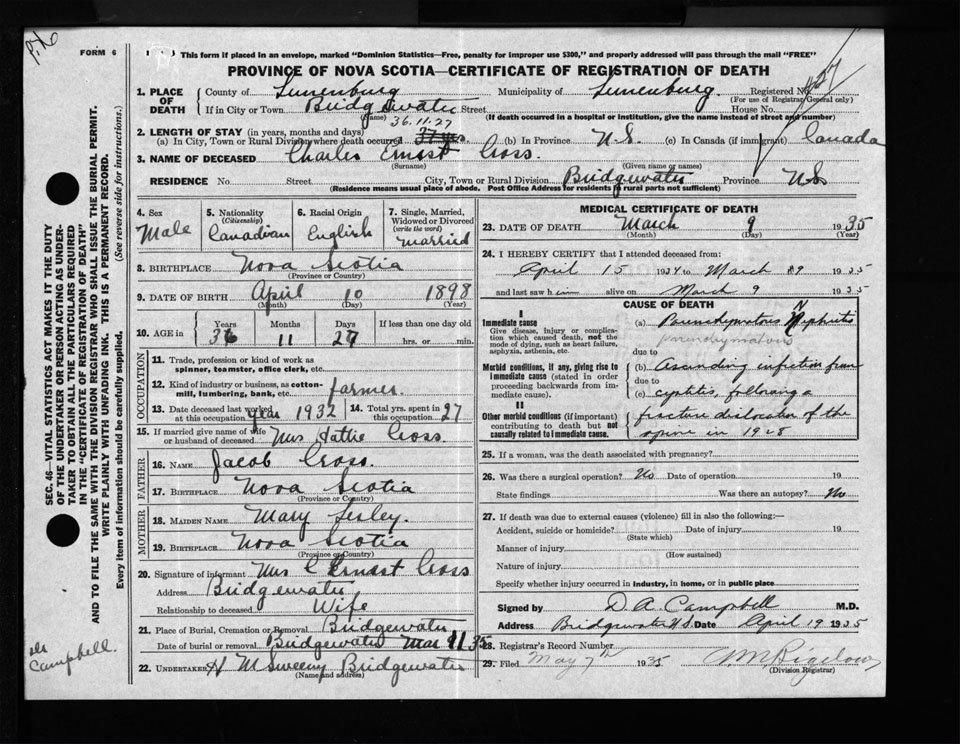 P.X6
FORM 6
This form if placed in an envelope, marked "Dominion Statistics—Free, penalty for improper use $300," and properly addressed will pass through the mail "FREE"
PROVINCE OF NOVA SCOTIA—CERTIFICATE OF REGISTRATION OF DEATH
1. PLACE OF DEATH County of Lunenburg Municipality of Lunenburg. Registered No.
(For use of Registrar General only)
If in City or Town Bridgewater Street House No.
(Name) (If death occurred in a hospital or institution, give the name instead of street and number)
36.11.27
2. LENGTH OF STAY (in years, months and days)
(a) In City, Town or Rural Division where death occurred 37 yrs. (b) In Province N.S. (c) In Canada (if immigrant) Canada
3. NAME OF DECEASED Charles Ernest Cross.
(Surname) (Given name or names)
RESIDENCE No. Street City, Town or Rural Division Bridgewater Province N.S
(Residence means usual place of abode. Post Office Address for residents of rural parts not sufficient)
4. Sex Male
5. Nationality (Citizenship) Canadian
6. Racial Origin English
7. Single, Married, Widowed or Divorced (write the word) married
8. BIRTHPLACE Nova Scotia
(Province or Country)
9. DATE OF BIRTH April 10 1898
(Month) (Day) (Year)
10. AGE in Years 36 Months 11 Days 27 If less than one day old hrs. or min.
OCCUPATION
11. Trade, profession or kind of work as spinner, teamster, office clerk, etc.
12. Kind of industry or business, as cotton-mill, lumbering, bank, etc. farmer.
13. Date deceased last worked at this occupation year 1932 14. Total yrs. spent in this occupation 27
15. If married give name of wife or husband of deceased Mrs Hattie Cross.
FATHER
16. NAME Jacob Cross.
17. BIRTHPLACE Nova Scotia
(Province or Country)
MOTHER
18. MAIDEN NAME Mary
19. BIRTHPLACE Nova Scotia
(Province or Country)
20. Signature of informant Mrs C Ernest Cross
Address Bridgewater
Relationship to deceased Wife
21. Place of Burial, Cremation or Removal Bridgewater
Date of burial or removal Bridgewater Mar 11 35
22. UNDERTAKER M Sweeny Bridgewater
(Name and address)
MEDICAL CERTIFICATE OF DEATH
23. DATE OF DEATH March 9 1935
(Month) (Day) (Year)
24. I HEREBY CERTIFY that I attended deceased from:
April 15 1934 to March 9 1935
and last saw him alive on March 9 1935
CAUSE OF DEATH
I
Immediate cause
Give disease, injury or complication which caused death, not the mode of dying, such as heart failure, asphyxia, asthenia, etc.
(a) Nephritis
parenchymatous
due to
Morbid conditions, if any, giving rise to immediate cause (stated in order proceeding backwards from immediate cause).
(b) Ascending infection from
due to
(c) cystitis, following a
II
Other morbid conditions (if important) contributing to death but not causally related to immediate cause.
fracture dislocation of the
spine in 1928
25. If a woman, was the death associated with pregnancy?
26. Was there a surgical operation? No Date of operation 19
State findings Was there an autopsy? No
27. If death was due to external causes (violence) fill in also the following:—
Accident, suicide or homicide? Date of injury 19
(State which)
Manner of injury
(How sustained)
Nature of injury
Specify whether injury occurred in industry, in home, or in public place
Signed by D A Campbell M.D.
Address Bridgewater N.S. Date April 19 1935
28. Registrar's Record Number
29. Filed May 7th 1935
(Division Registrar)
SEC. 46—VITAL STATISTICS ACT MAKES IT THE DUTY OF THE UNDERTAKER OR PERSON ACTING AS UNDERTAKER TO OBTAIN ALL THE PARTICULARS REQUIRED IN THE "CERTIFICATE OF REGISTRATION OF DEATH" AND TO FILE THE SAME WITH THE DIVISION REGISTRAR WHO SHALL ISSUE THE BURIAL PERMIT.
WRITE PLAINLY WITH UNFADING INK. THIS IS A PERMANENT RECORD.
Every item of information should be carefully supplied. (See reverse side for instructions.)
Campbell.